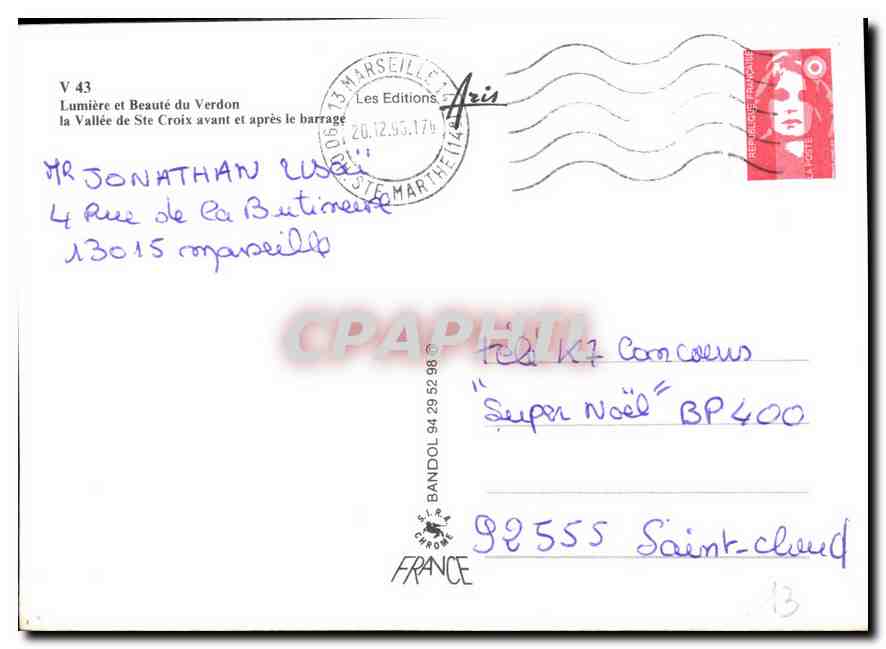 V 43
Lumière et Beauté du Verdon
la Vallée de Ste Croix avant et après le barrage
Les Editions Aris
13 MARSEILLE 14
STE MARTHE (14e)
RÉPUBLIQUE FRANÇAISE
LA POSTE
MR JONATHAN
4 Rue de la Butineuse
13015 marseille
CPAPHIL
télé K7 Concours
"Super Noël" BP 400
92555 Saint-cloud
BANDOL 94 29 52 98 ©
S.I.R.A.
CHROME
FRANCE
13